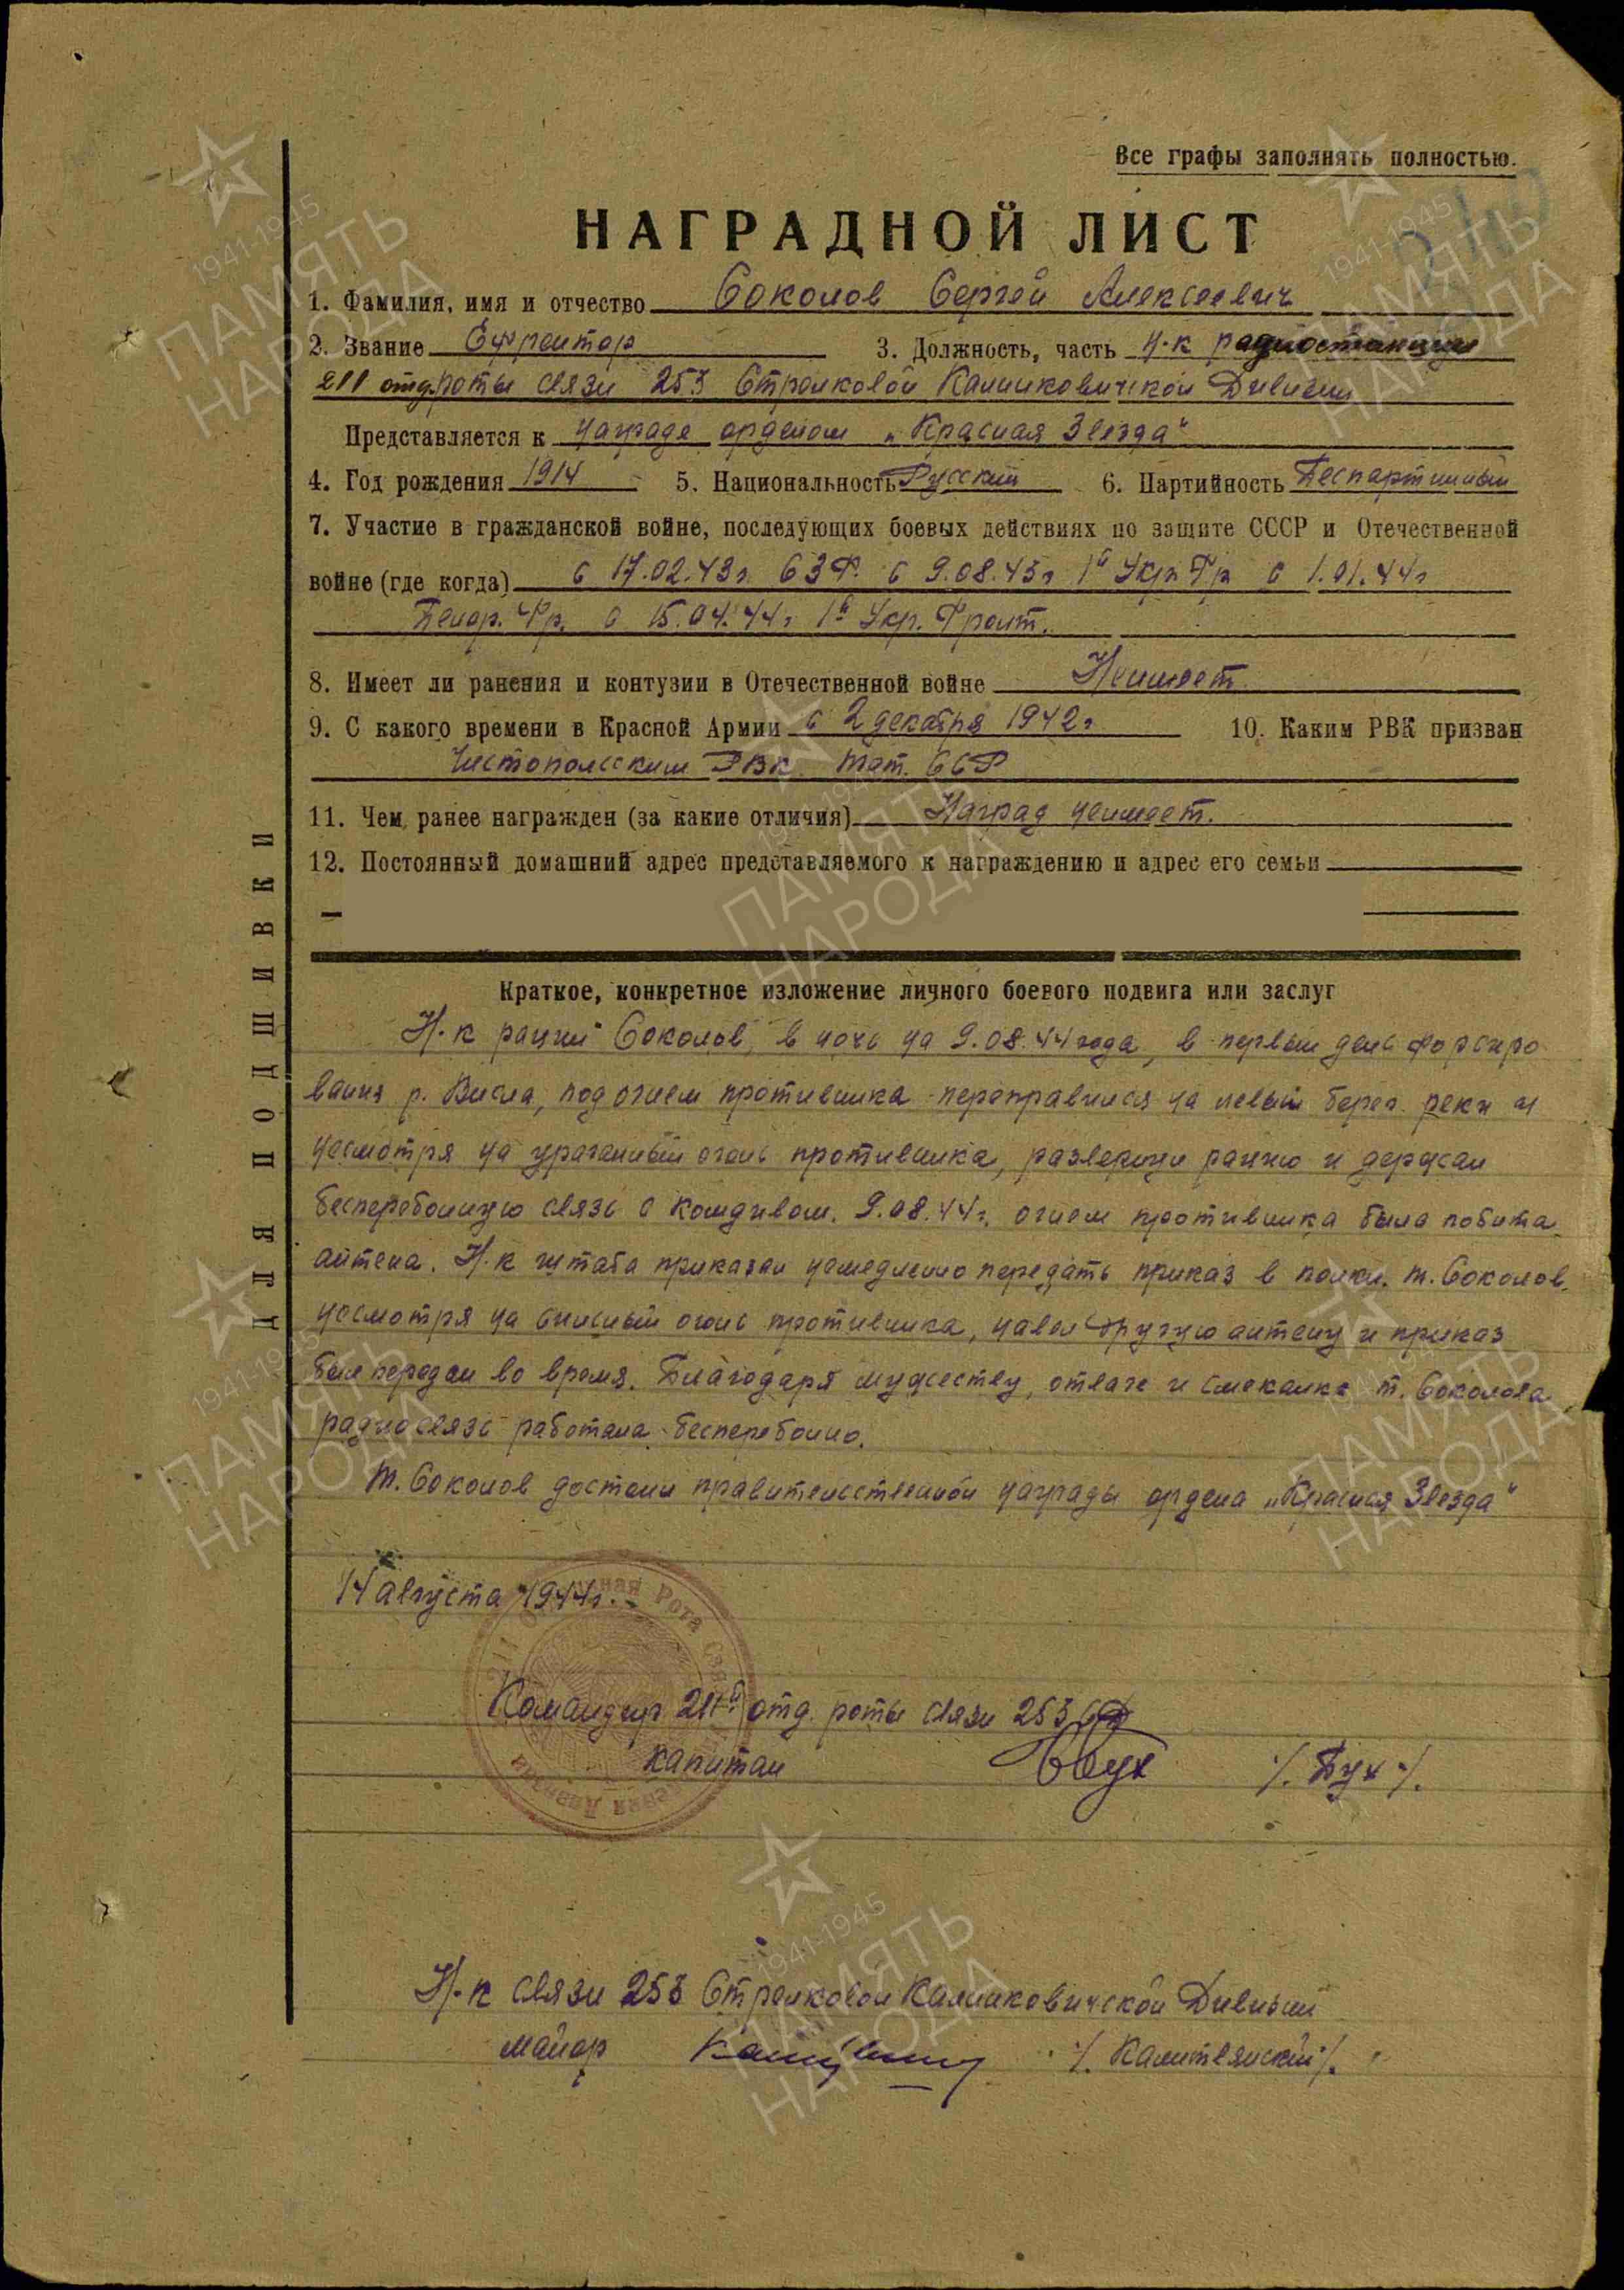 Все графы заполнять полностью.
НАГРАДНОЙ ЛИСТ
1. Фамилия, имя и отчество Соколов Сергей Алексеевич
2. Звание Ефрейтор 3. Должность, часть н-к радиостанции
211 отд. роты связи 253 Стрелковой Калинковичской Дивизии
Представляется к награде орденом „Красная Звезда"
4. Год рождения 1914 5. Национальность Русский 6. Партийность Беспартийный
7. Участие в гражданской войне, последующих боевых действиях по защите СССР и Отечественной
войне (где когда) с 17.02.43г. СЗФ. с 9.08.43г 1й Укр Фр с 1.01.44г
Белор. Фр. с 15.04.44г 1й Укр. Фронт.
8. Имеет ли ранения и контузии в Отечественной войне Неимеет
9. С какого времени в Красной Армии с 2 декабря 1942г 10. Каким РВК призван
Чистопольским РВК Тат. ССР
11. Чем ранее награжден (за какие отличия) Наград неимеет.
12. Постоянный домашний адрес представляемого к награждению и адрес его семьи
Краткое, конкретное изложение личного боевого подвига или заслуг
Н-к рации Соколов, в ночь на 9.08.44 года, в первый день форсиро
вания р. Висла, под огнем противника переправился на левый берег реки и
несмотря на ураганный огонь противника, развернул рацию и держал
бесперебойную связь с Комдивом. 9.08.44г. огнем противника была побита
антена. Н-к штаба приказал немедленно передать приказ в полки. т. Соколов
несмотря на сильный огонь противника, навел другую антену и приказ
был передан во время. Благодаря мужеству, отваге и смекалке т. Соколова
радиосвязь работала бесперебойно.
Т. Соколов достоин правительственной награды ордена „Красная Звезда"
14 августа 1944г.
Командир 211й отд. роты связи 253 СД
капитан /. Бух /.
Н-к связи 253 Стрелковой Калинковичской Дивизии
майор /. Калитвянский /.
ДЛЯ ПОДШИВКИ
211 Отдельная Рота Связи
1941-1945
ПАМЯТЬ
НАРОДА